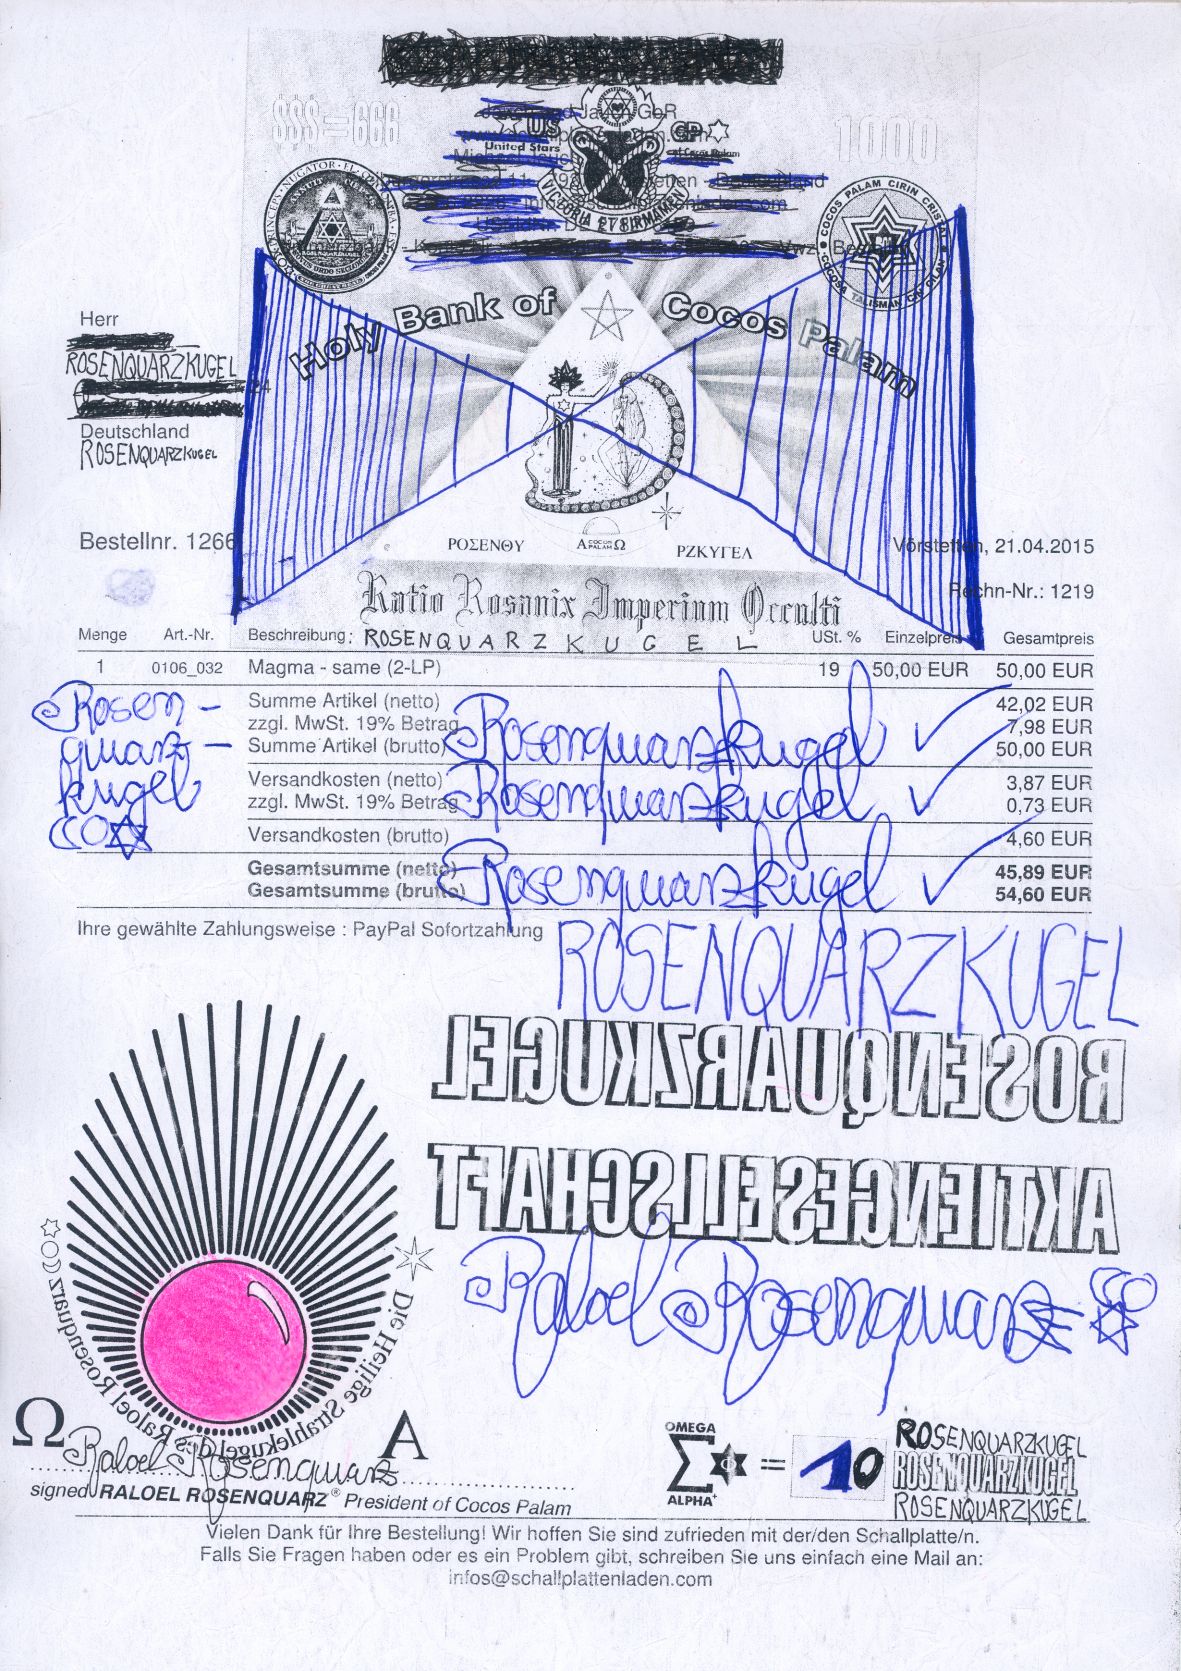 $$$=666
1000
US
United Stars
GP
of Cocos Palam
VICTORIA ET FIRMAMENT
COCOS PALAM CIRIN CRISTAL
TALISMAN
Holy Bank of Cocos Palam
Herr
ROSENQUARZKUGEL
Deutschland
ROSENQUARZKUGEL
Bestellnr. 1266
ΡΟΣΕΝΘΥ
Α COCOS PALAM Ω
ΡΖΚΥΓΕΛ
Vörstetten, 21.04.2015
Rechn-Nr.: 1219
Ratio Rosanix Imperium Occulti
Menge Art.-Nr. Beschreibung: ROSENQUARZKUGEL USt. % Einzelpreis Gesamtpreis
1 0106_032 Magma - same (2-LP) 19 50,00 EUR 50,00 EUR
Summe Artikel (netto) 42,02 EUR
zzgl. MwSt. 19% Betrag 7,98 EUR
Summe Artikel (brutto) 50,00 EUR
Rosenquarzkugel
Rosen-
quarz-
kugel
Versandkosten (netto) 3,87 EUR
zzgl. MwSt. 19% Betrag 0,73 EUR
Rosenquarzkugel
Versandkosten (brutto) 4,60 EUR
Gesamtsumme (netto) 45,89 EUR
Gesamtsumme (brutto) 54,60 EUR
Rosenquarzkugel
Ihre gewählte Zahlungsweise : PayPal Sofortzahlung
ROSENQUARZKUGEL
ROSENQUARZKUGEL
AKTIENGESELLSCHAFT
Raloel Rosenquarz
Die Heilige Strahlekugel des Raloel Rosenquarz
Ω
Α
Raloel Rosenquarz
signed RALOEL ROSENQUARZ® President of Cocos Palam
OMEGA
Σ = 10
ALPHA+
ROSENQUARZKUGEL
ROSENQUARZKUGEL
ROSENQUARZKUGEL
Vielen Dank für Ihre Bestellung! Wir hoffen Sie sind zufrieden mit der/den Schallplatte/n.
Falls Sie Fragen haben oder es ein Problem gibt, schreiben Sie uns einfach eine Mail an:
infos@schallplattenladen.com